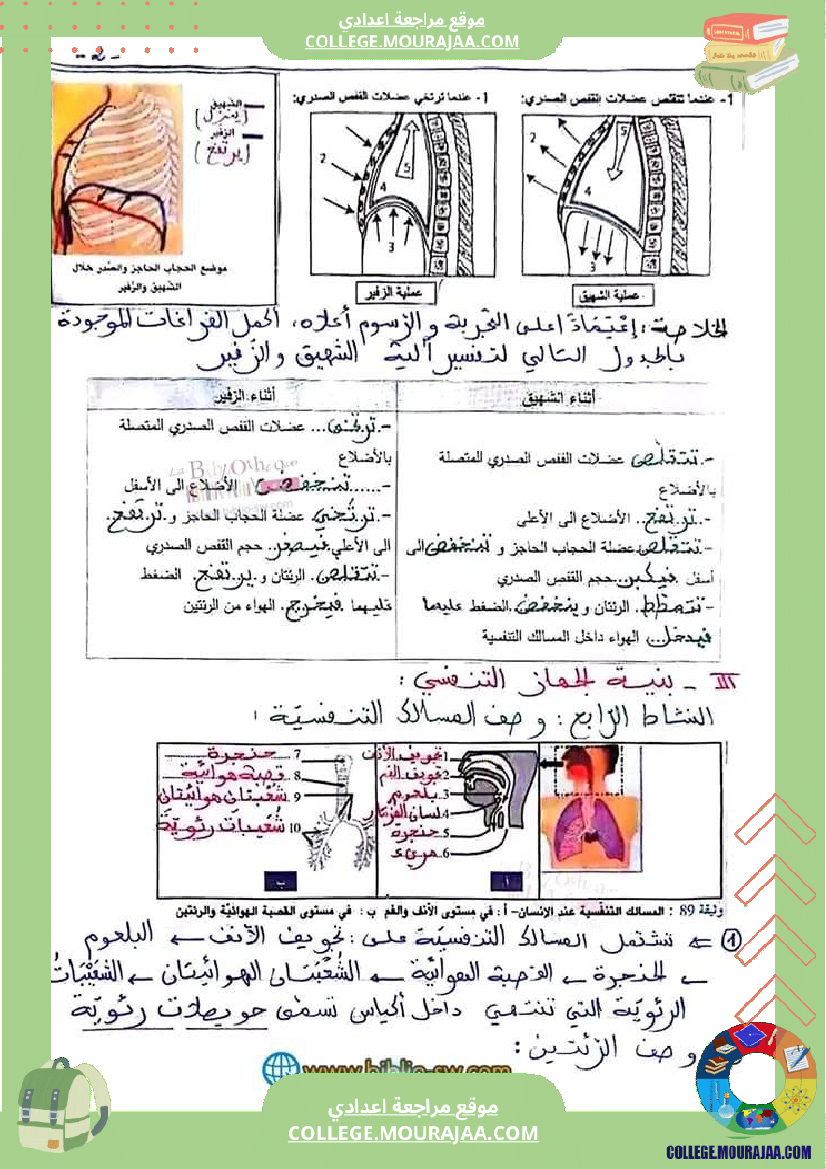 موقع مراجعة اعدادي
COLLEGE.MOURAJAA.COM
- 2 -
1- عندما تتقلص عضلات القفص الصدري:
2
5
4
3
عملية الشهيق
1- عندما ترتخي عضلات القفص الصدري:
2
5
4
3
عملية الزفير
الشهيق
(ينزل)
الزفير
(يرتفع)
موضع الحجاب الحاجز والصدر خلال
الشهيق والزفير
الخلاصة: إعتمادا على التجربة و الرسوم أعلاه، أكمل الفراغات الموجودة
بالجدول التالي لتفسير آلية الشهيق و الزفير
أثناء الشهيق
-.تتقلص عضلات القفص الصدري المتصلة
بالأضلاع
-..ترتفع.. الأضلاع الى الأعلى
-.تتقلص.عضلة الحجاب الحاجز و تنخفض.الى
أسفل فيكبر.حجم القفص الصدري
-تتمطط. الرئتان و ينخفض.الضغط عليهما
فيدخل... الهواء داخل المسالك التنفسية
أثناء الزفير
-.ترتخي... عضلات القفص الصدري المتصلة
بالأضلاع
-......تنخفض الأضلاع الى الأسفل
-.ترتخي. عضلة الحجاب الحاجز و ترتفع.
الى الأعلى فيصغر. حجم القفص الصدري
-.تتقلص. الرئتان و يرتفع. الضغط
عليهما .فيخرج. الهواء من الرئتين
La Bibyothèque
III - بنية الجهاز التنفسي :
النشاط الرابع : وصف المسالك التنفسية :
1 تجويف الأنف
2 تجويف الفم
3 بلعوم
4 لسان المزمار
5 حنجرة
6 مريء
أ
7 حنجرة
8 قصبة هوائية
9 شعبتان هوائيتان
10 شعيبات رئوية
ب
وثيقة 89 : المسالك التنفسية عند الإنسان- أ : في مستوى الأنف والفم ب : في مستوى القصبة الهوائية والرئتين
① ⇐ تشتمل المسالك التنفسية على : تجويف الأنف ← البلعوم
← الحنجرة ← القصبة الهوائية ← الشعبتان الهوائيتان ← الشعيبات
الرئوية التي تنتهي داخل أكياس تسمى حويصلات رئوية
وصف الرئتين :
www.biblio-sw.com
موقع مراجعة اعدادي
COLLEGE.MOURAJAA.COM
COLLEGE.MOURAJAA.COM